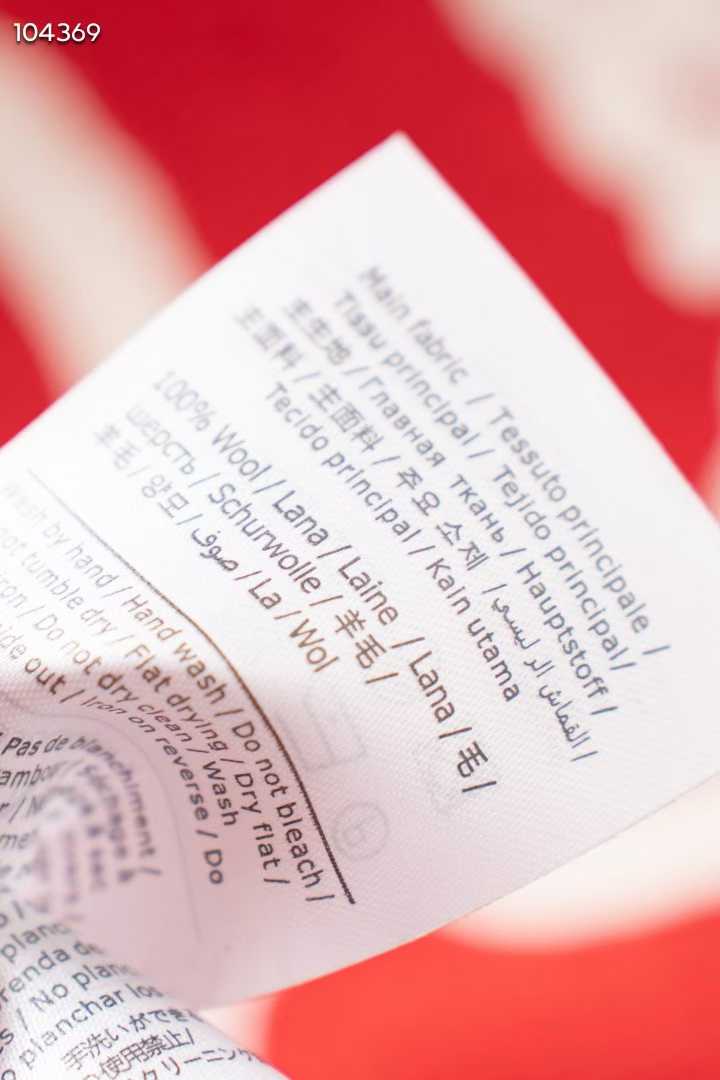 104369
Main fabric / Tessuto principale /
Tissu principal / Tejido principal/
主生地 / Главная ткань / Hauptstoff /
主面料 / 主面料 / 주요 소제 / القماش الرئيسي /
Tecido principal / Kain utama
100% Wool/ Lana / Laine / Lana / 毛 /
шерсть / Schurwolle / 羊毛 /
羊毛 / 양모 / صوف / La / Wol
Wash by hand / Hand wash / Do not bleach /
not tumble dry / Flat drying / Dry flat /
iron / Do not dry clean / Wash
out / Iron on reverse / Do
Pas de blanchiment /
Séchage à
renda de
/ No planc
planchar los
手洗いができ
使用禁止/
クリーニング